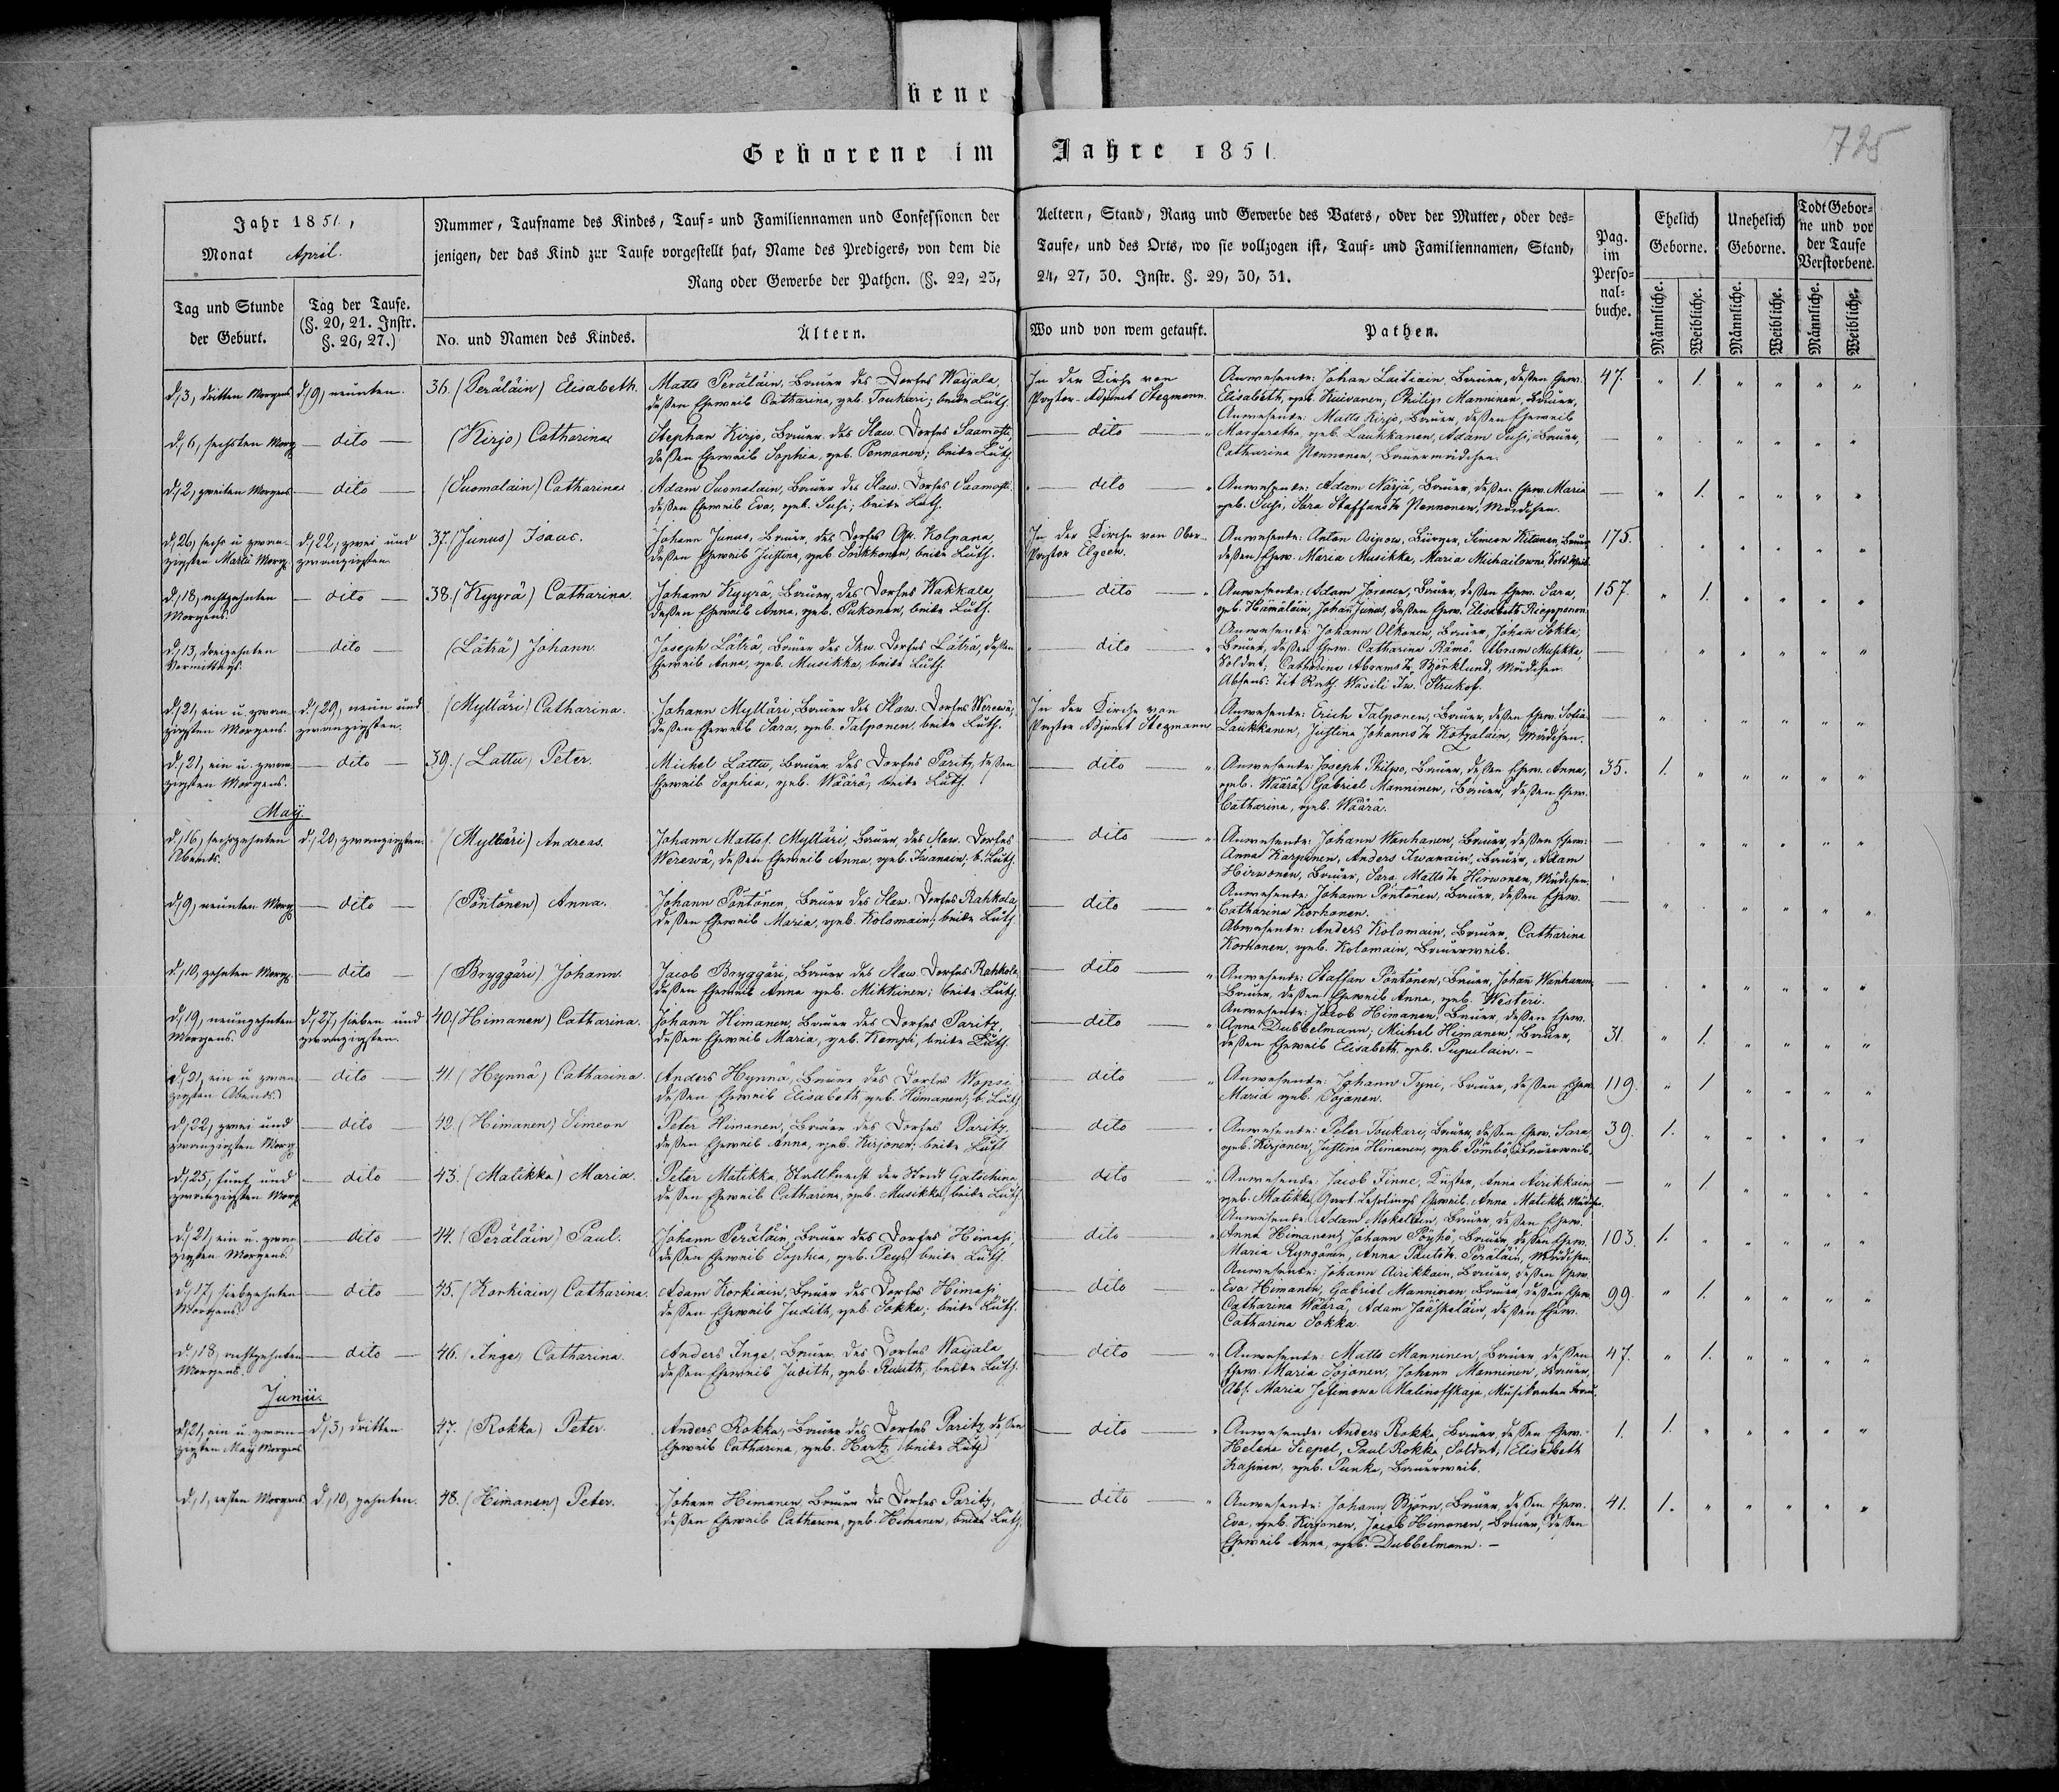 hene
Geborene im Jahre 1851.
725
Jahr 1851,
Monat April.
Tag und Stunde
der Geburt.
Tag der Taufe.
(§. 20, 21. Instr.
§. 26, 27.)
Nummer, Taufname des Kindes, Tauf- und Familiennamen und Confessionen der
jenigen, der das Kind zur Taufe vorgestellt hat, Name des Predigers, von dem die
Rang oder Gewerbe der Pathen. (§. 22, 23,
No. und Namen des Kindes.
Ältern.
Aeltern, Stand, Rang und Gewerbe des Vaters, oder der Mutter, oder des-
Taufe, und des Orts, wo sie vollzogen ist, Tauf- und Familiennamen, Stand,
24, 27, 30. Instr. §. 29, 30, 31.
Wo und von wem getauft.
Pathen.
Pag.
im
Perso-
nal-
buche.
Ehelich
Geborne.
Unehelich
Geborne.
Todt Gebor-
ne und vor
der Taufe
Verstorbene.
Männliche.
Weibliche.
Männliche.
Weibliche.
Männliche.
Weibliche.
d. 3, dritten Morgens
d. 9, neunten.
36. (Peräläin) Elisabeth.
Matts Peräläin, Bauer des Dorfes Waijala,
deßen Eheweib Catharina, geb. Toukari; beide Luth.
In der Kirche von
Pastor-Adjunct Stegmann.
Anwesende: Johan Laitiain, Bauer, deßen Ehew.
Elisabeth, geb. Kuivanen, Philip Manninen, Bauer,
47. " 1. " " " "
d. 6, sechsten Morg.
dito
(Kirjo) Catharina
Stephan Kirjo, Bauer des Slaw. Dorfes Saamosti,
deßen Eheweib Sophia, geb. Pennonen; beide Luth.
dito
Anwesende: Matts Kirjo, Bauer, deßen Eheweib
Margaretha, geb. Laukkanen, Adam Susi, Bauer,
Catharina Pennonen, Bauermädchen.
d. 2, zweiten Morgens
dito
(Suomalain) Catharina
Adam Suomalain, Bauer des Slaw. Dorfes Saamosti,
deßen Eheweib Eva, geb. Susi; beide Luth.
dito
Anwesende: Adam Närjä, Bauer, deßen Ehew. Maria
geb. Susi, Sara Staffans Tr. Pennonen, Mädchen.
1.
d. 26, sechs u. zwan-
zigsten Martii Morg.
d. 22, zwei und
zwanzigsten
37. (Junus) Isaac.
Johann Junus, Bauer, des Dorfes Gr. Kolpana,
deßen Eheweib Justina, geb. Sinkkonen, beide Luth.
In der Kirche von Ober-
Pastor Elgeen.
Anwesende: Anton Osipow, Bürger, Simeon Kitunen, Bauer
deßen Ehew. Maria Musikka, Maria Michailowna
175.
d. 18, achtzehnten
Morgens.
dito
38. (Kyyrä) Catharina.
Johann Kyyrä, Bauer, des Dorfes Wakkala,
deßen Eheweib Anna, geb. Pukonen, beide Luth.
dito
Anwesende: Adam Joronen, Bauer, deßen Ehew. Sara,
geb. Hämäläin, Johan Junus, deßen Ehew. Elisabeth Kiepponen.
157. " 1. " " " "
d. 13, dreizehnten
Vormittags.
dito
(Läträ) Johann.
Joseph Läträ, Bauer des Skw. Dorfes Läträ, deßen
Eheweib Anna, geb. Musikka, beide Luth.
dito
Anwesende: Johann Olkonen, Bauer, Johan Sokka,
Bauer, deßen Ehew. Catharina Rämö. Abram Musikka,
Soldat, Catharina Abrams Tr. Björklund, Mädchen.
Absens: Tit. Rath. Wasili Iw. Strukof.
d. 21, ein u. zwan-
zigsten Morgens.
d. 29, neun und
zwanzigsten.
(Mylläri) Catharina.
Johann Mylläri, Bauer des Slaw. Dorfes Werewä,
deßen Eheweib Sara, geb. Talponen, beide Luth.
In der Kirche von
Pastor Adjunct Stegmann
Anwesende: Erich Talponen, Bauer, deßen Ehew. Sofia
Laukkanen, Justina Johanns Tr. Kotzalain, Mädchen.
d. 21, ein u. zwan-
zigsten Morgens.
dito
39. (Lattu) Peter.
Michel Lattu, Bauer des Dorfes Paritz, deßen
Eheweib Sophia, geb. Wäärä, beide Luth.
dito
Anwesende: Joseph Philpo, Bauer, deßen Ehew. Anna,
geb. Wäärä, Gabriel Manninen, Bauer, deßen Ehew.
Catharina, geb. Wäärä.
35. 1. " " " " "
May.
d. 16, sechszehnten
Abends.
d. 20, zwanzigsten.
(Mylläri) Andreas.
Johann Matts s. Mylläri, Bauer des Slaw. Dorfes
Werewä, deßen Eheweib Anna, geb. Iwanain, b. Luth.
dito
Anwesende: Johann Wanhanen, Bauer, deßen Ehew:
Anna Karpunen, Anders Iwanain, Bauer, Adam
Hirwonen, Bauer, Sara Matts Tr. Hirwonen, Mädchen.
d. 9, neunten Morg.
dito
(Pöntönen) Anna.
Johann Pöntönen, Bauer des Slaw. Dorfes Rahkola,
deßen Eheweib Maria, geb. Kolomain; beide Luth.
dito
Anwesende: Johann Pöntönen, Bauer, deßen Ehew.
Catharina Korhonen.
Abwesende: Anders Kolomain, Bauer, Catharina
Korhonen, geb. Kolomain, Bauerweib.
d. 10, zehnten Morg.
dito
(Bryggäri) Johann.
Jacob Bryggäri, Bauer des Slaw. Dorfes Rahkola,
deßen Eheweib Anna geb. Mikkinen; beide Luth.
dito
Anwesende: Staffan Pöntönen, Bauer, Johan Wanhanen,
Bauer, deßen Eheweib Anna, geb. Westeri.
d. 19, neunzehnten
Morgens.
d. 27, sieben und
zwanzigsten.
40. (Himanen) Catharina.
Johann Himanen, Bauer des Dorfes Paritz,
deßen Eheweib Maria, geb. Kemppi, beide Luth.
dito
Anwesende: Jacob Himanen, Bauer, deßen Ehew.
Anna Dubbelmann; Michel Himanen, Bauer,
deßen Eheweib Elisabeth geb. Pupulain.
31. " 1. " " " "
d. 21, ein u. zwan-
zigsten Abends.
dito
41. (Hynnä) Catharina.
Anders Hynnä, Bauer des Dorfes Wopsi,
deßen Eheweib Elisabeth geb. Himanen, b. Luth.
dito
Anwesende: Johann Tyni, Bauer, deßen Ehew.
Maria geb. Sojanen.
119. " 1 " " " "
d. 22, zwei und
zwanzigsten Morg.
dito
42. (Himanen) Simeon
Peter Himanen, Bauer des Dorfes Paritz,
deßen Eheweib Anna, geb. Kirjonen, beide Luth.
dito
Anwesende: Peter Toukari, Bauer, deßen Ehew. Sara
geb. Kirjonen, Justina Himanen, geb. Pömbö, Bauerweib.
39. 1. " " " " "
d. 25, fünf und
zwanzigsten Morg.
dito
43. (Matikka) Maria.
Peter Matikka, Stallknecht der Stadt Gatschina,
deßen Eheweib Catharina, geb. Musikka, beide Luth.
dito
Anwesende: Jacob Finne, Küster, Anna Airikkain
geb. Matikka, Eheweib, Anna Matikka Mädchen.
— " 1 " " " "
d. 21, ein u. zwan-
zigsten Morgens.
dito
44. (Peräläin) Paul.
Johann Peräläin, Bauer des Dorfes Himasi,
deßen Eheweib Sophia, geb. Puys, beide Luth.
dito
Anwesende: Adam Mokelain, Bauer, deßen Ehew.
Anna Himanen, Johann Pöyhö, Bauer, deßen Ehew.
Maria Ryngänen, Anna Pauls Tr. Peräläin, Mädchen.
103. 1. " " " " "
d. 17, siebzehnten
Morgens.
dito
45. (Korkiain) Catharina.
Adam Korkiain, Bauer des Dorfes Himasi
deßen Eheweib Judith, geb. Sokka; beide Luth.
dito
Anwesende: Johann Airikkain, Bauer, deßen Ehew.
Eva Himanen, Gabriel Manninen, Bauer, deßen Ehew.
Catharina Wäärä, Adam Jääskeläin, deßen Ehew.
Catharina Sokka.
99. " 1. " " " "
d. 18, achtzehnten
Morgens.
dito
46. (Inge) Catharina.
Anders Inge, Bauer des Dorfes Waijala
deßen Eheweib Judith, geb. Ruuth, beide Luth.
dito
Anwesende: Matts Manninen, Bauer, deßen
Ehew. Maria Sojonen, Johann Manninen, Bauer,
Abs. Maria Jefimowa Malinoffskaya, Musikanten Frau.
47. " 1. " " " "
Junii.
d. 21, ein u. zwan-
zigsten May Morgens
d. 3, dritten
47. (Rokka) Peter.
Anders Rokka, Bauer des Dorfes Paritz, deßen
Eheweib Catharina, geb. Hartz, beide Luth.
dito
Anwesende: Anders Rokka, Bauer, deßen Ehew.
Helena Siepel, Paul Rokka, Soldat, Elisabeth
Kasinen, geb. Punka, Bauerweib.
1. 1. " " " " "
d. 1, ersten Morgens.
d. 10, zehnten.
48. (Himanen) Peter.
Johann Himanen, Bauer des Dorfes Paritz,
deßen Eheweib Catharina, geb. Himanen, beide Luth.
dito
Anwesende: Johann Björn, Bauer, deßen Ehew.
Eva, geb. Kirjonen, Jacob Himonen, Bauer, deßen
Eheweib Anna, geb. Dubbelmann.
41. 1. " " " " "